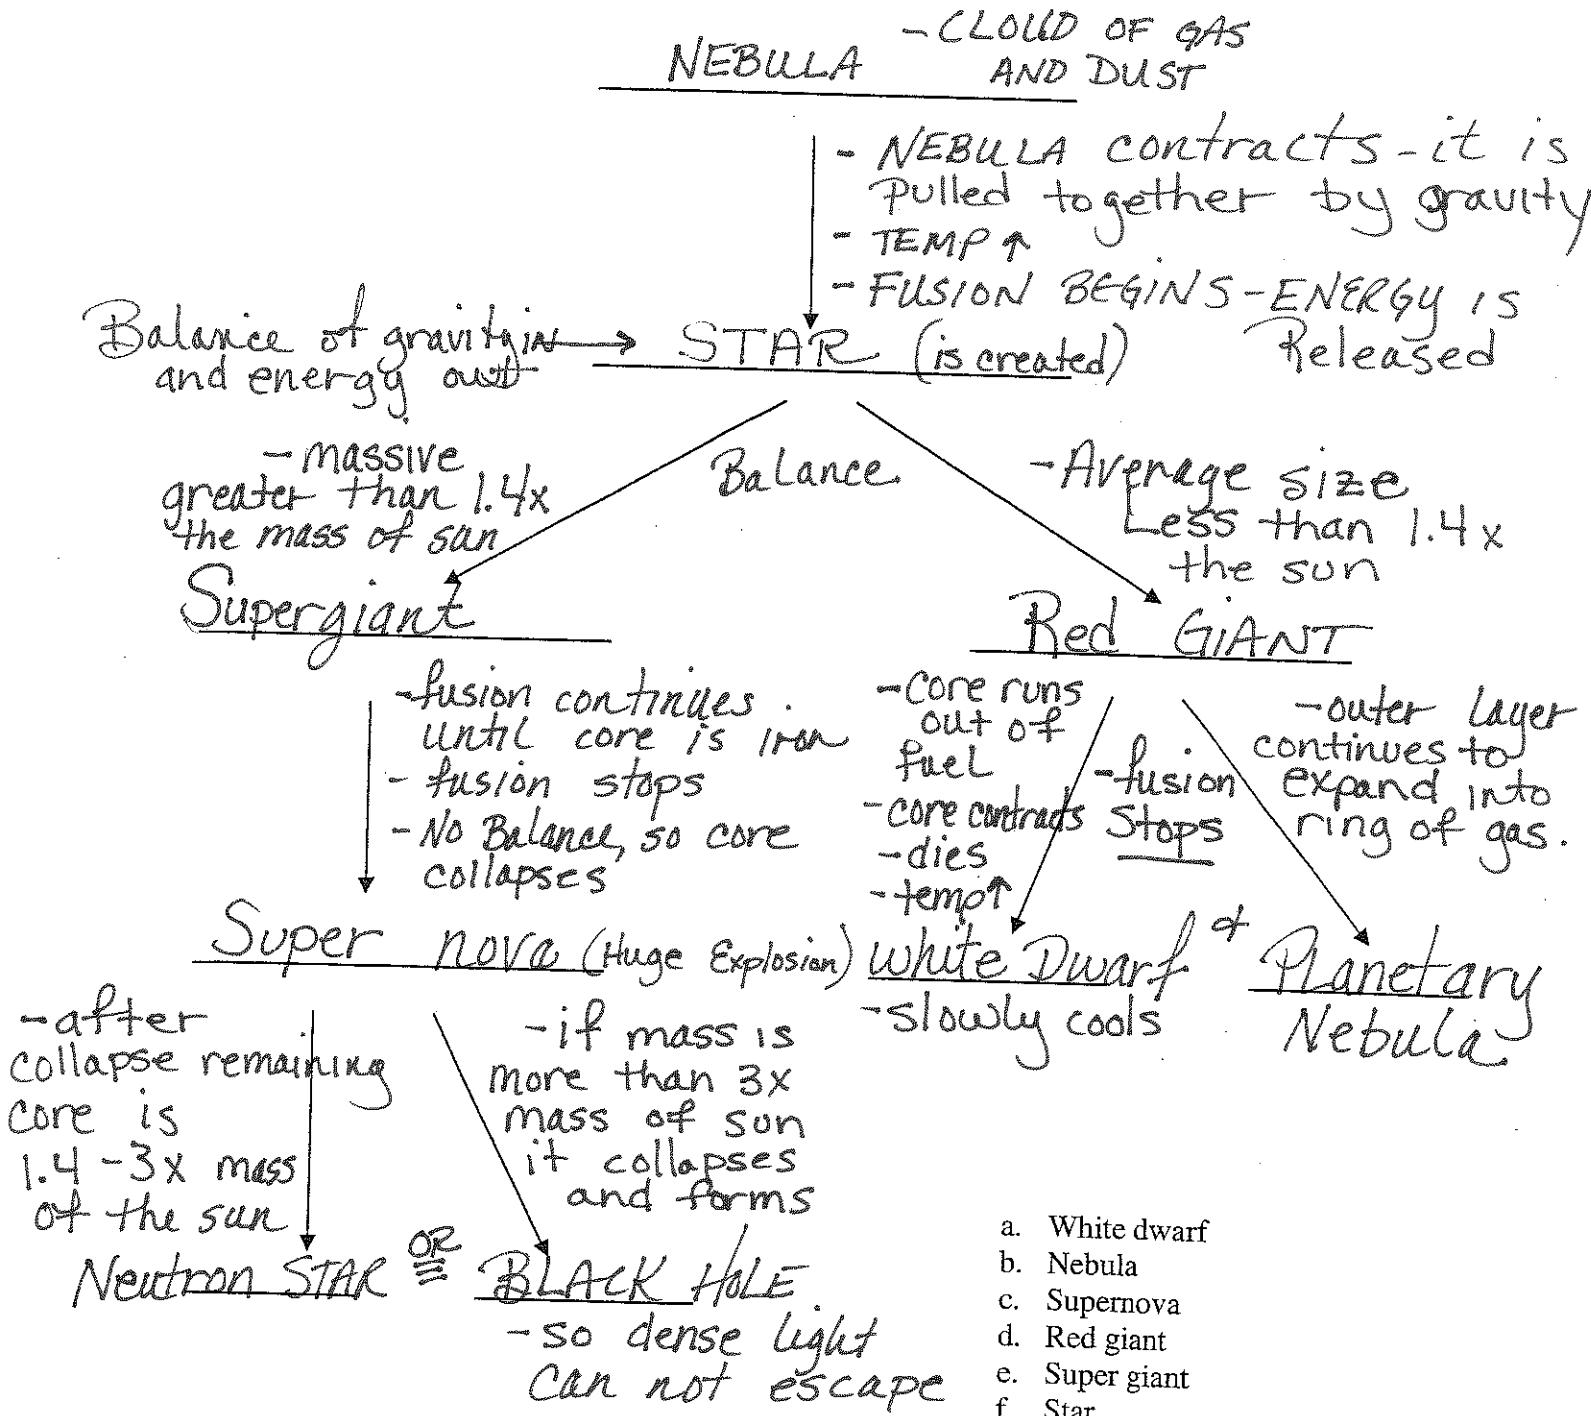 NEBULA
- CLOUD OF GAS
AND DUST
- NEBULA contracts - it is
Pulled together by gravity
- TEMP ↑
- FUSION BEGINS - ENERGY is
Released
Balance of gravity in →
and energy out
STAR (is created)
- massive
greater than 1.4x
the mass of sun
Balance
- Average size
Less than 1.4x
the sun
Supergiant
Red GIANT
- fusion continues
until core is iron
- fusion stops
- No Balance, so core
collapses
- core runs
out of
fuel
- core contracts
- dies
- temp ↑
- fusion
stops
- outer layer
continues to
expand into
ring of gas.
Super nova (Huge Explosion)
White Dwarf &
- slowly cools
Planetary
Nebula
- after
collapse remaining
core is
1.4 - 3x mass
of the sun
- if mass is
more than 3x
mass of sun
it collapses
and forms
Neutron STAR OR BLACK HOLE
- so dense light
can not escape
a. White dwarf
b. Nebula
c. Supernova
d. Red giant
e. Super giant
f. Star